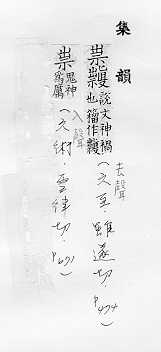 集韻
祟 說文神禍也籀作𥜒
去聲
(文五·雖遂切·P474)
祟 鬼神為厲
入聲
(文術·雪律切·P671)